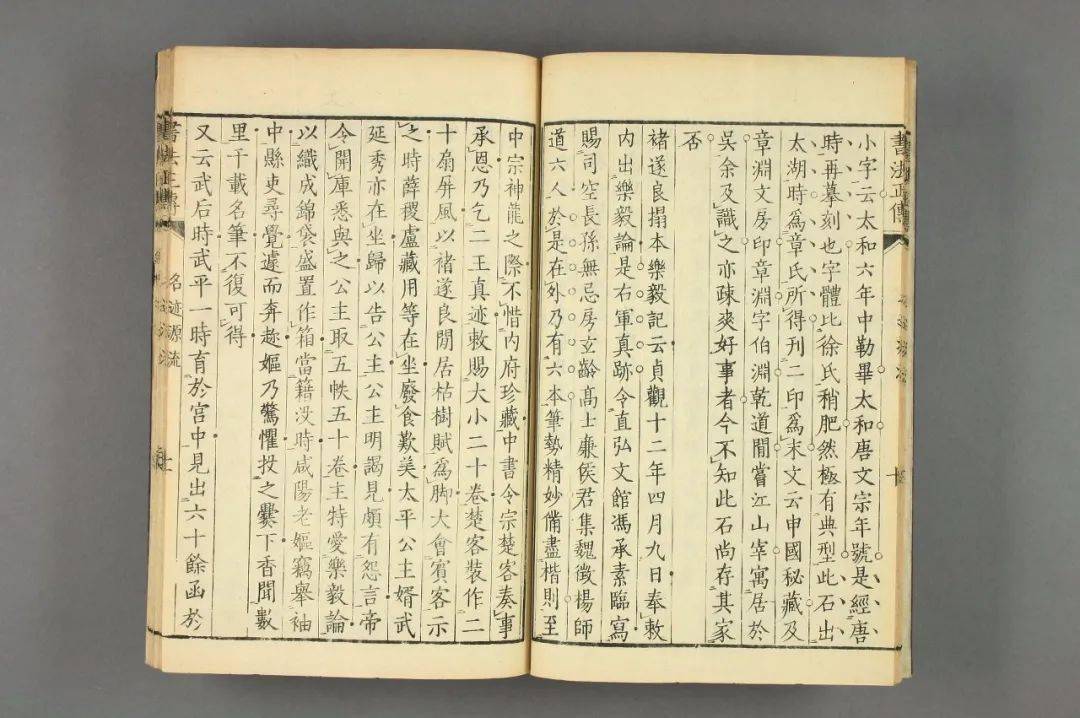 書法正傳
小字云太和六年中勒畢太和唐文宗年號是經唐
時再摹刻也字體比徐氏稍肥然極有典型此石出
太湖時爲章氏所得刊二印爲末文云申國秘藏及
章淵文房印章淵字伯淵乾道閒嘗江山宰寓居於
吳余及識之亦疎爽好事者今不知此石尚存其家
否
褚遂良搨本樂毅記云貞觀十二年四月九日奉敕
内出樂毅論是右軍真跡令直弘文館馮承素臨寫
賜司空長孫無忌房玄齡高士廉侯君集魏徵楊師
道六人於是在外乃有六本筆勢精妙備盡楷則至
中宗神龍之際不惜内府珍藏中書令宗楚客奏事
承恩乃乞二王真迹敕賜大小二十卷楚客裝作二
十扇屏風以褚遂良閒居枯樹賦爲脚大會賓客示
之時薛稷盧藏用等在坐廢食歎美太平公主婿武
延秀亦在坐歸以告公主公主明謁見頗有怨言帝
令開庫悉與之公主取五帙五十卷主特愛樂毅論
以織成錦袋盛置作箱當籍没時咸陽老嫗竊舉袖
中縣吏尋覺遽而奔趂嫗乃驚懼投之爨下香聞數
里千載名筆不復可得
又云武后時武平一時育於宮中見出六十餘函於
書法正傳
名迹源流